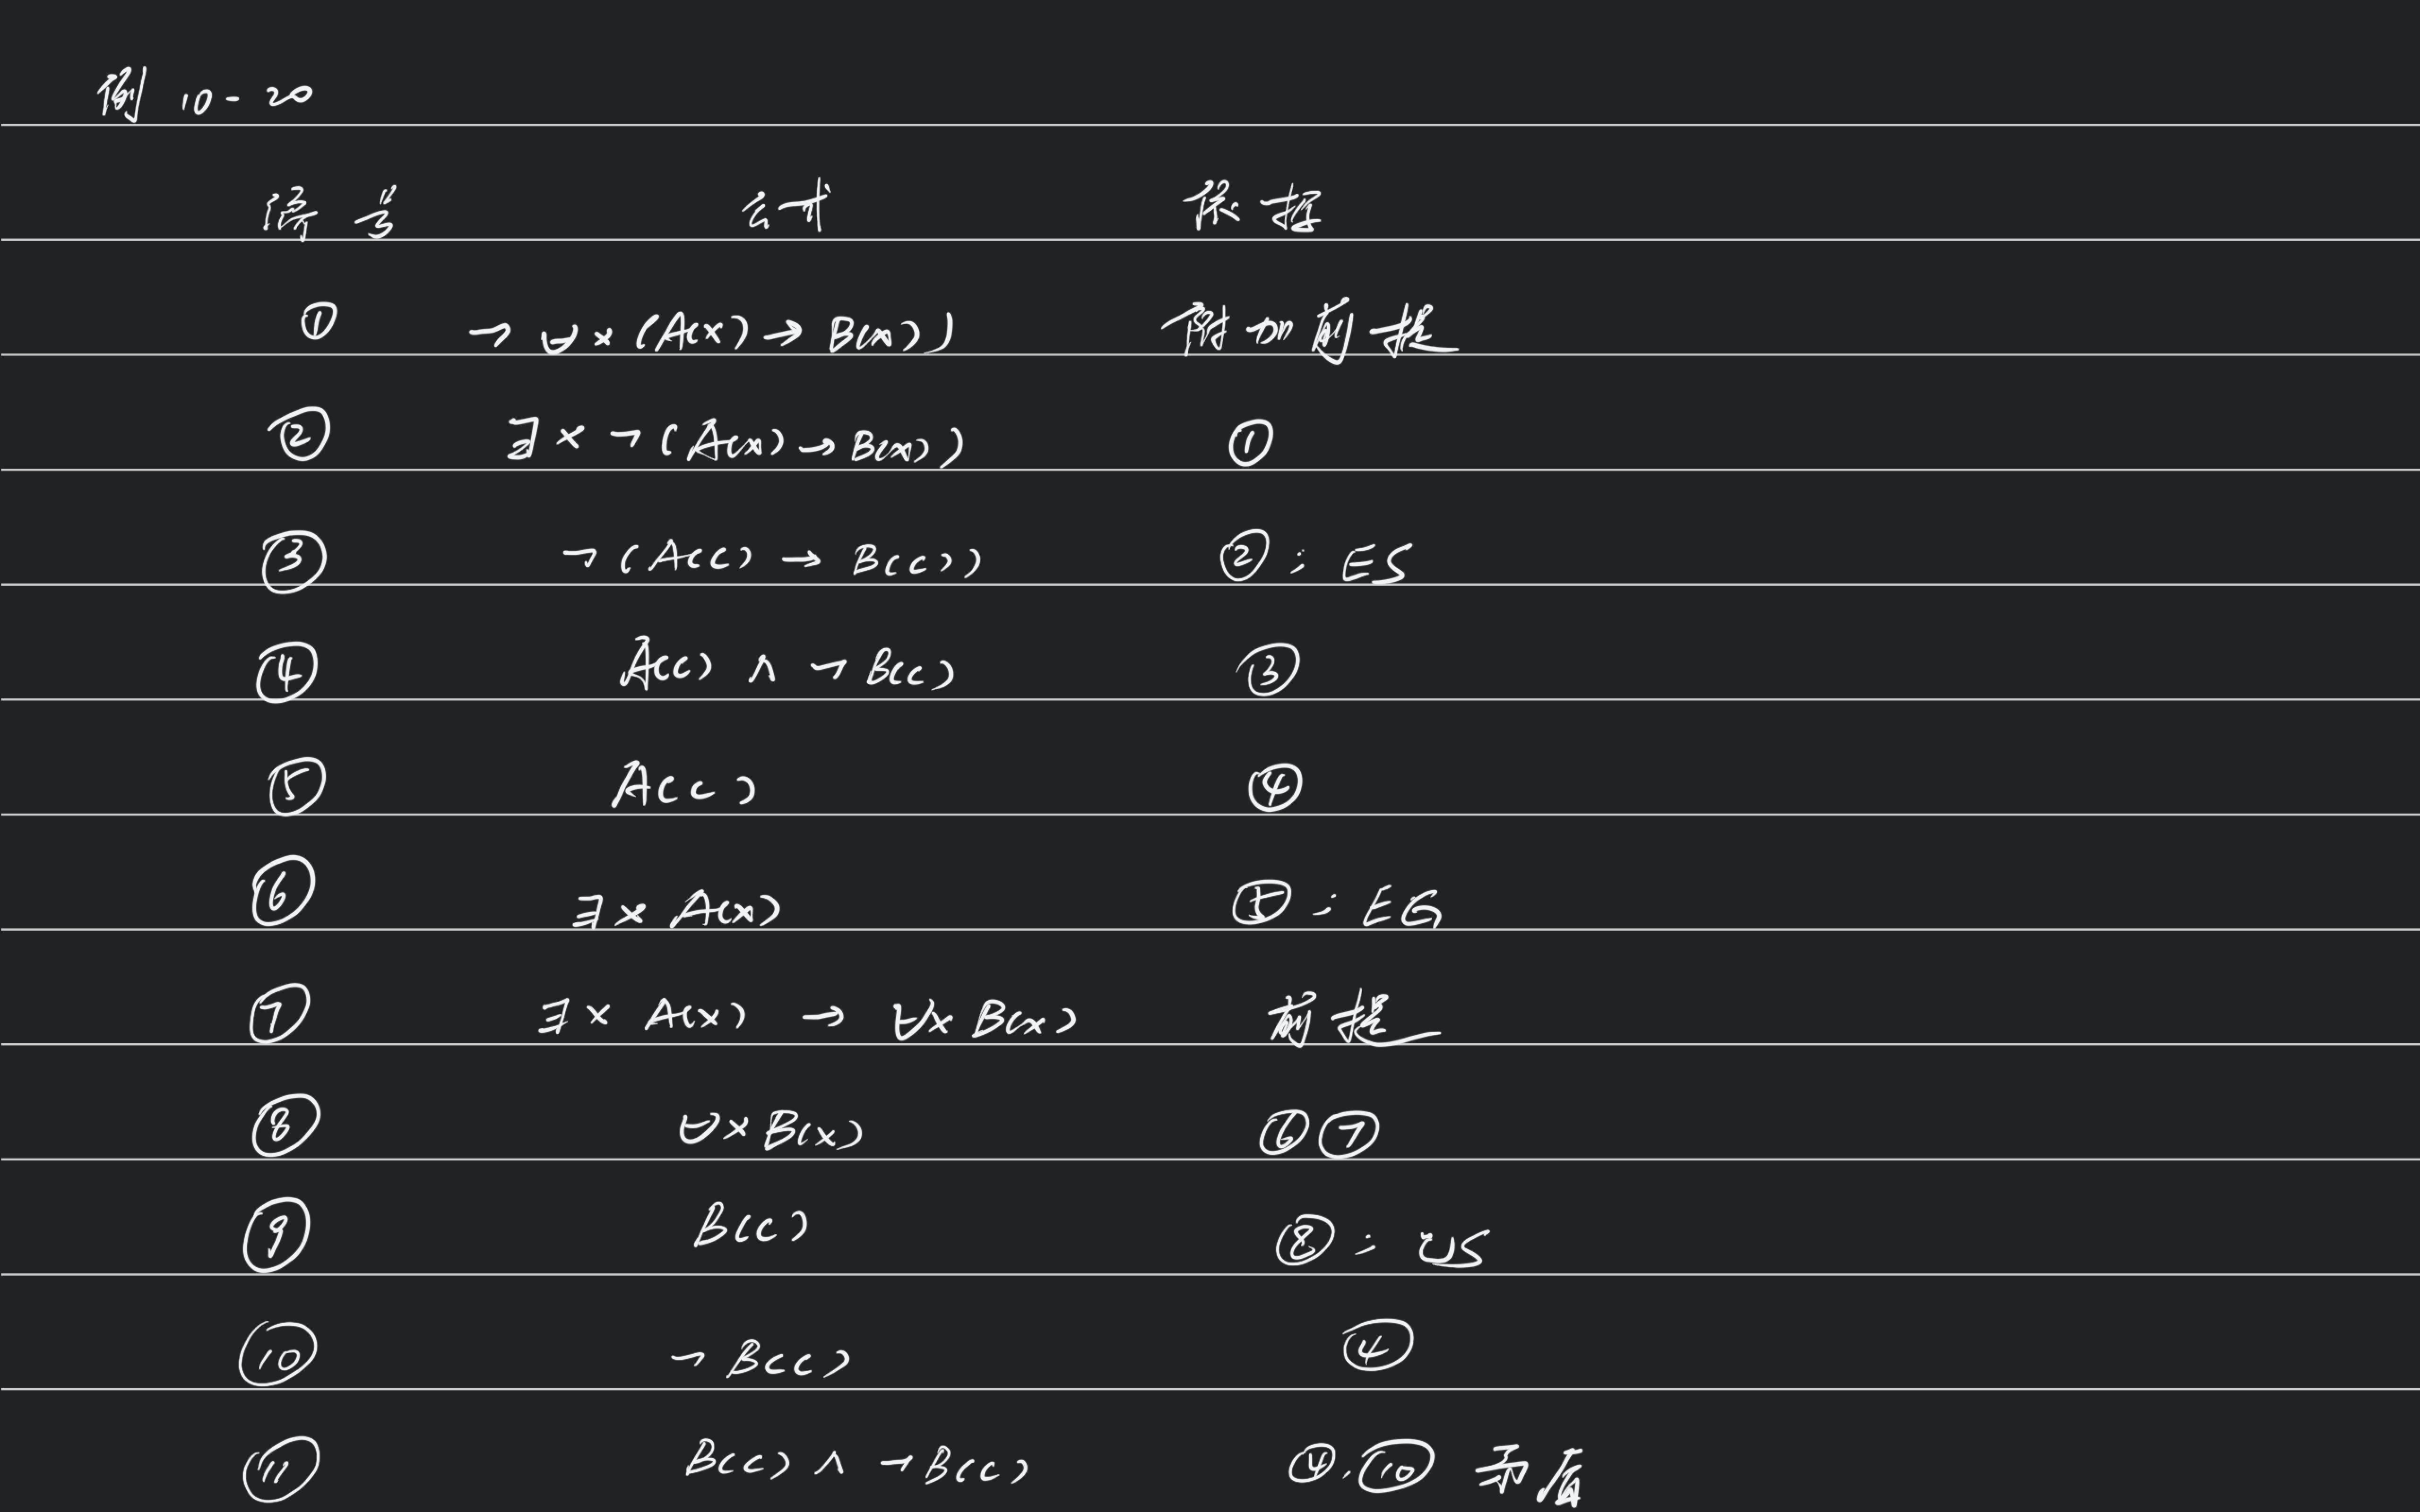 例 10-20
序号 公式 依据
① ¬∀x(A(x)→B(x)) 附加前提
② ∃x¬(A(x)→B(x)) ①
③ ¬(A(c)→B(c)) ②;ES
④ A(c)∧¬B(c) ③
⑤ A(c) ④
⑥ ∃xA(x) ⑤;EG
⑦ ∃xA(x)→∀xB(x) 前提
⑧ ∀xB(x) ⑥⑦
⑨ B(c) ⑧;US
⑩ ¬B(c) ④
⑪ B(c)∧¬B(c) ④,⑩矛盾